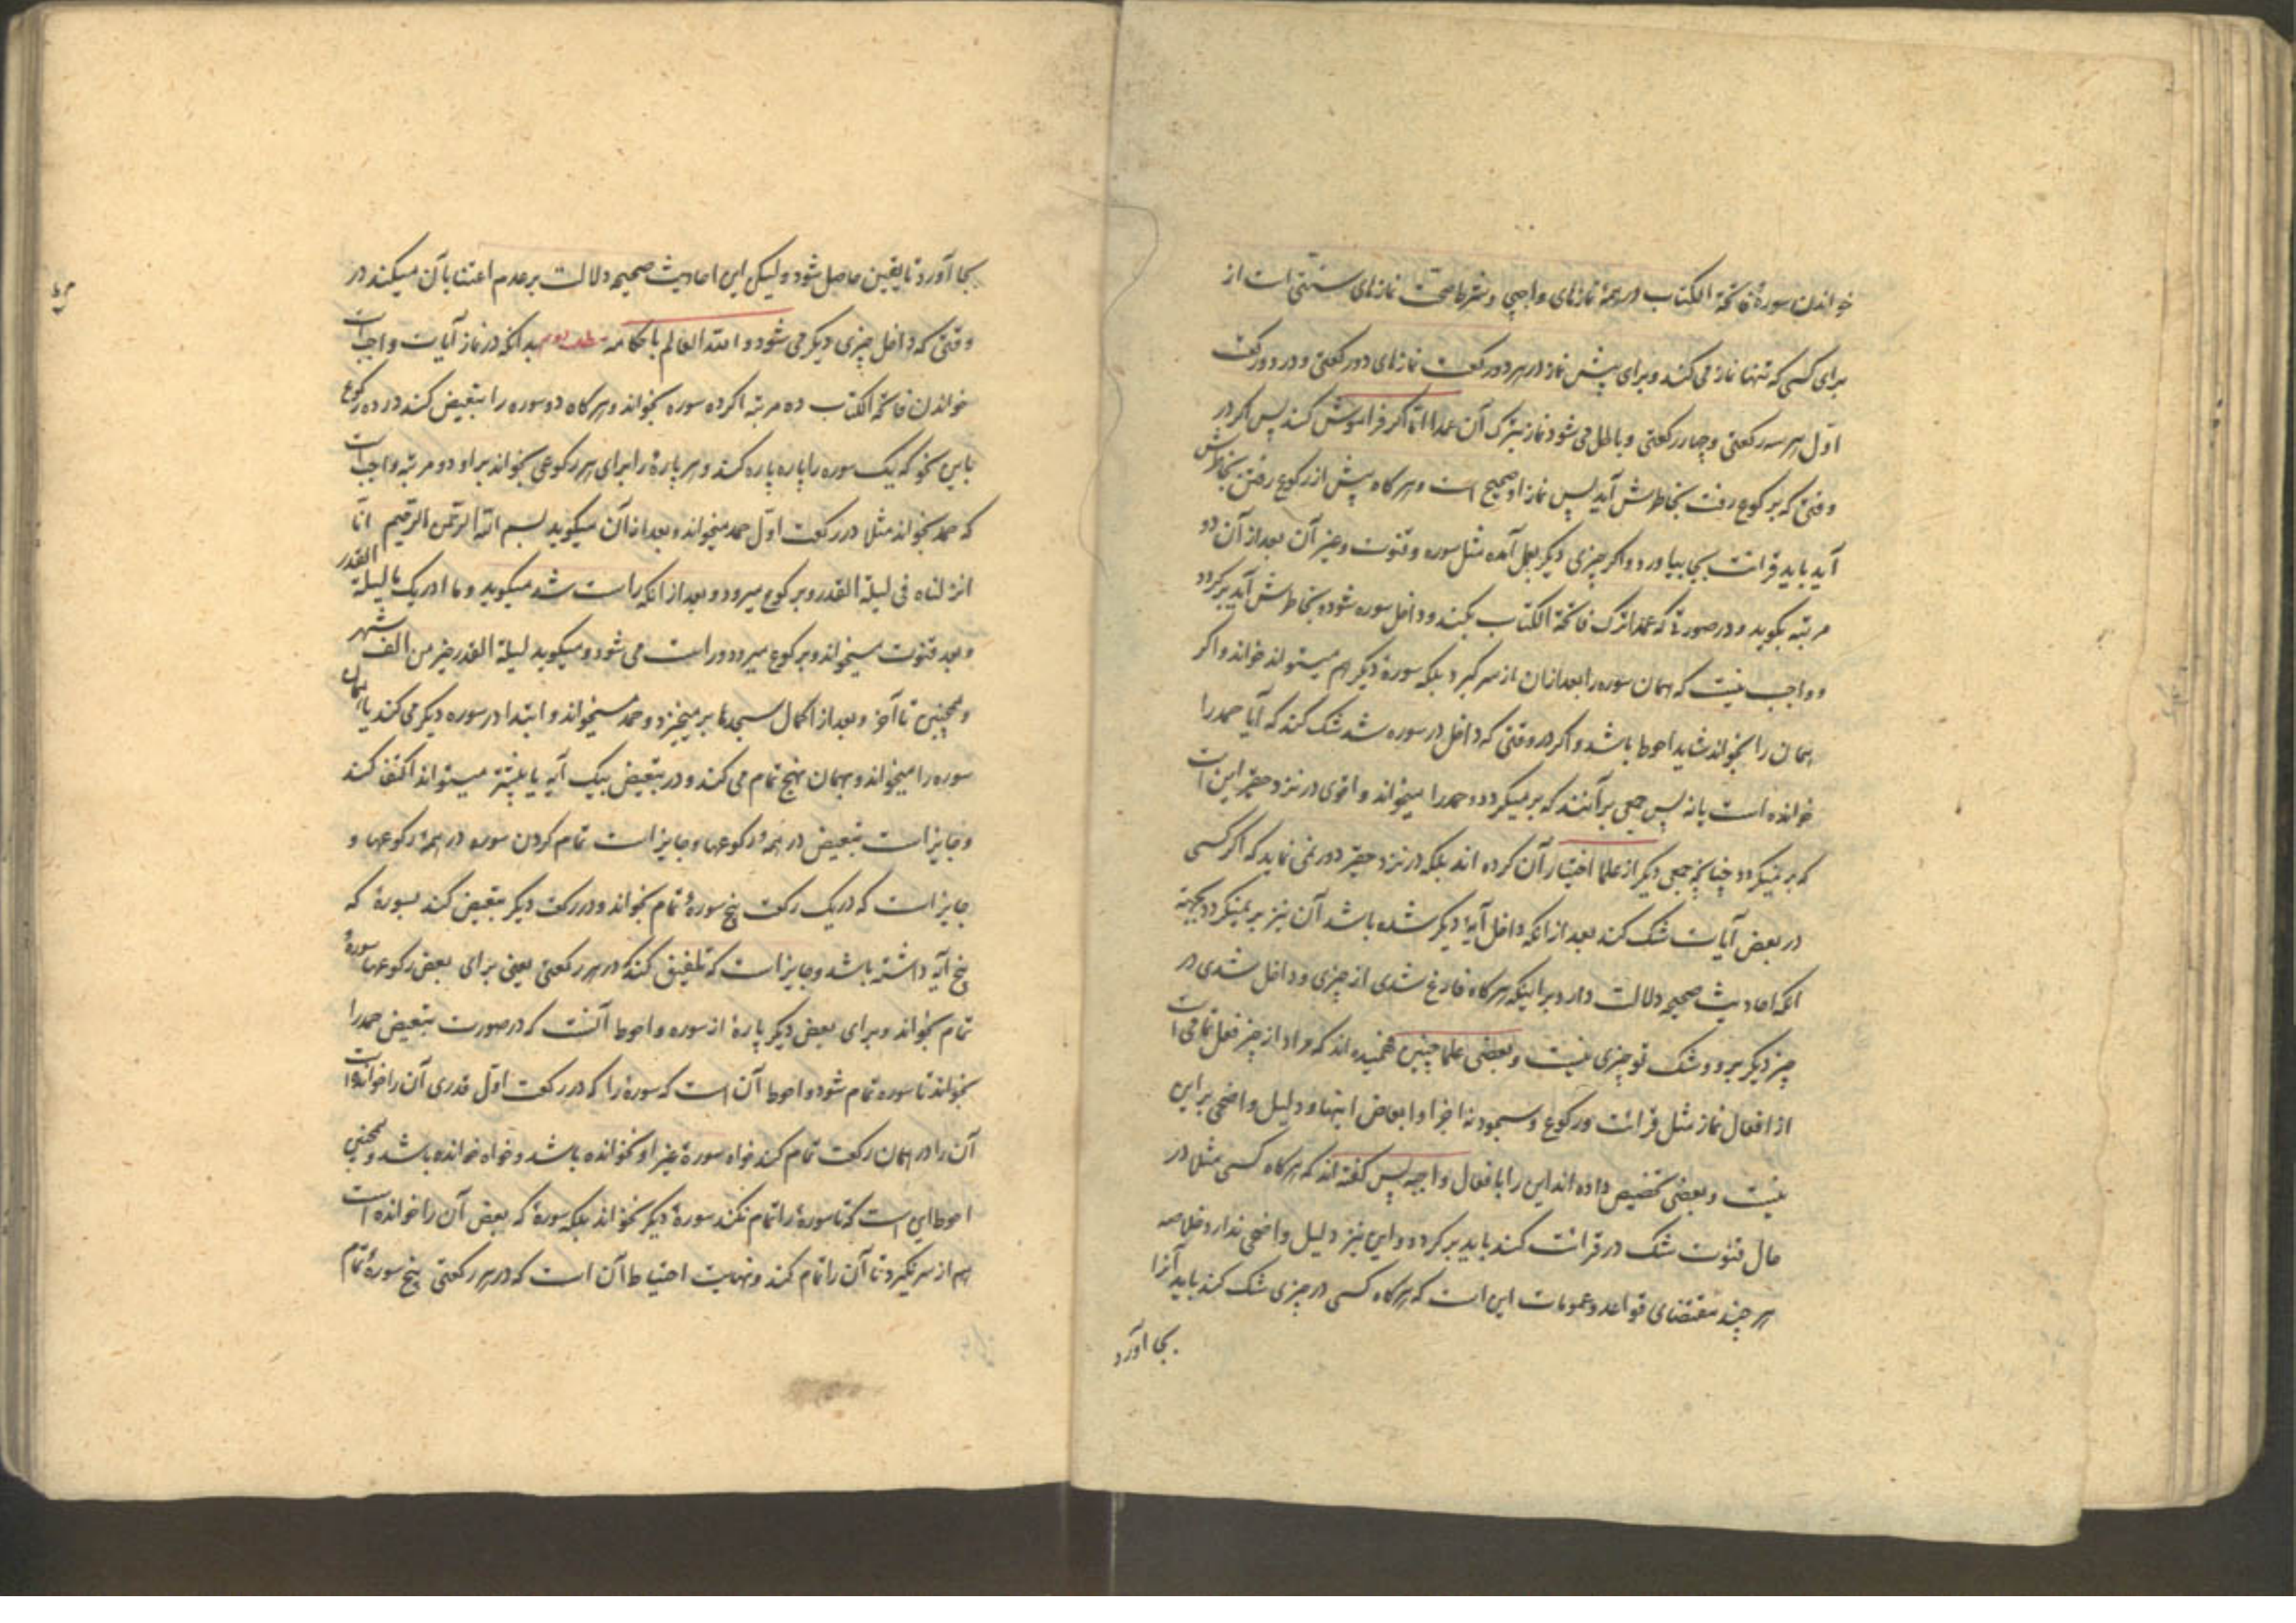 خواندن سورهٔ فاتحة الکتاب در همهٔ نمازهای واجبی و شرط صحت نمازهای سنتی است از
برای کسی که تنها نماز می کند و برای پیش نماز در هر دو رکعت نمازهای دو رکعتی و در دو رکعت
اول هر سه رکعتی و چهار رکعتی و باطل می شود نماز بترک آن عمدا اما اگر فراموش کند پس اگر در
وقتی که برکوع رفت بخاطرش آید پس نماز او صحیح است و هرگاه پیش از رکوع رفتن بخاطرش
آید باید قرائت بجا بیاورد و اگر چیزی دیگر بعمل آمده مثل سوره و قنوت و غیر آن بعد از آن دو
مرتبه بگوید و در صورتی که عمدا ترک فاتحة الکتاب بکند و داخل سوره شود و بخاطرش آید برگردد
و واجب نیست که همان سوره را بعد ازان از سر گیرد بلکه سورهٔ دیگر هم میتواند خواند و اگر
همان را بخواند شاید احوط باشد و اگر در وقتی که داخل در سوره شد شک کند که آیا حمد را
خوانده است یا نه پس جمعی برآنند که بر میگردد و حمد را میخواند و اقوی در نزد حقیر این است
که بر نمیگردد چنانچه جمعی دیگر از علما اختیار آن کرده اند بلکه در نزد حقیر دور نمی نماید که اگر کسی
در بعض آیات شک کند بعد از انکه داخل آیهٔ دیگر شده باشد آن نیز بر نمیگردد بجهة
انکه احادیث صحیحه دلالت دارد بر اینکه هرگاه فارغ شدی از چیزی و داخل شدی در
چیز دیگر برو و شک تو چیزی نیست و بعضی علما چنین فهمیده اند که مراد از چیز فعل تمامی است
از افعال نماز مثل قرائت و رکوع و سجود نه اجزا و ابعاض اینها و دلیل واضحی بر این
نیست و بعضی تخصیص داده اند این را بافعال واجبه پس گفته اند که هرگاه کسی مثل در
حال قنوت شک در قرائت کند باید برگردد و این نیز دلیل واضحی ندارد خلاصه
هر چند مقتضای قواعد و عمومات این است که هرگاه کسی در چیزی شک کند باید آنرا
بجا آورد
بجا آورد تا یقین حاصل شود و لیکن این احادیث صحیحه دلالت بر عدم اعتنا بآن میکند در
وقتی که داخل چیزی دیگر می شود و الله العالم باحکامه مطلب دوم بدانکه در نماز آیات واجب است
خواندن فاتحة الکتاب ده مرتبه اگر ده سوره بخواند و هرگاه دو سوره را تبعیض کند در ده رکوع
باین نحو که یک سوره را پاره پاره کند و هر پارهٔ را برای هر رکوعی بخواند بر او دو مرتبه واجب است
که حمد بخواند مثلا در رکعت اول حمد میخواند و بعد از آن میگوید بسم الله الرحمن الرحیم انا
انزلناه فی لیلة القدر و برکوع میرود و بعد از انکه راست شد میگوید و ما ادریک ما لیلة القدر
و بعد قنوت میخواند و برکوع میرود و راست می شود و میگوید لیلة القدر خیر من الف شهر
و همچنین تا آخر و بعد از اکمال سجدها بر میخیزد و حمد میخواند و ابتدا در سوره دیگر می کند یا همان
سوره را میخواند و بهمان نهج تمام می کند و در تبعیض بیک آیه یا بیشتر میتواند اکتفا کند
و جایز است تبعیض در همهٔ رکوعها و جایز است تمام کردن سوره در همهٔ رکوعها و
جایز است که در یک رکعت پنج سورهٔ تمام بخواند و در رکعت دیگر تبعیض کند بسورهٔ که
پنج آیه داشته باشد و جایز است که تلفیق کند در هر رکعتی یعنی برای بعض رکوعها سورهٔ
تمام بخواند و برای بعض دیگر پارهٔ از سوره و احوط آنست که در صورت تبعیض حمد را
بخواند تا سوره تمام شود و احوط آن است که سورهٔ را که در رکعت اول قدری آن را خوانده است
آن را در همان رکعت تمام کند خواه سورهٔ غیر او نخوانده باشد و خواه خوانده باشد و همچنین
احوط این است که تا سورهٔ را تمام نکند سورهٔ دیگر نخواند بلکه سورهٔ که بعض آن را خوانده است
هم از سر نگیرد تا آن را تمام کند و نهایت احتیاط آن است که در هر رکعتی پنج سورهٔ تمام